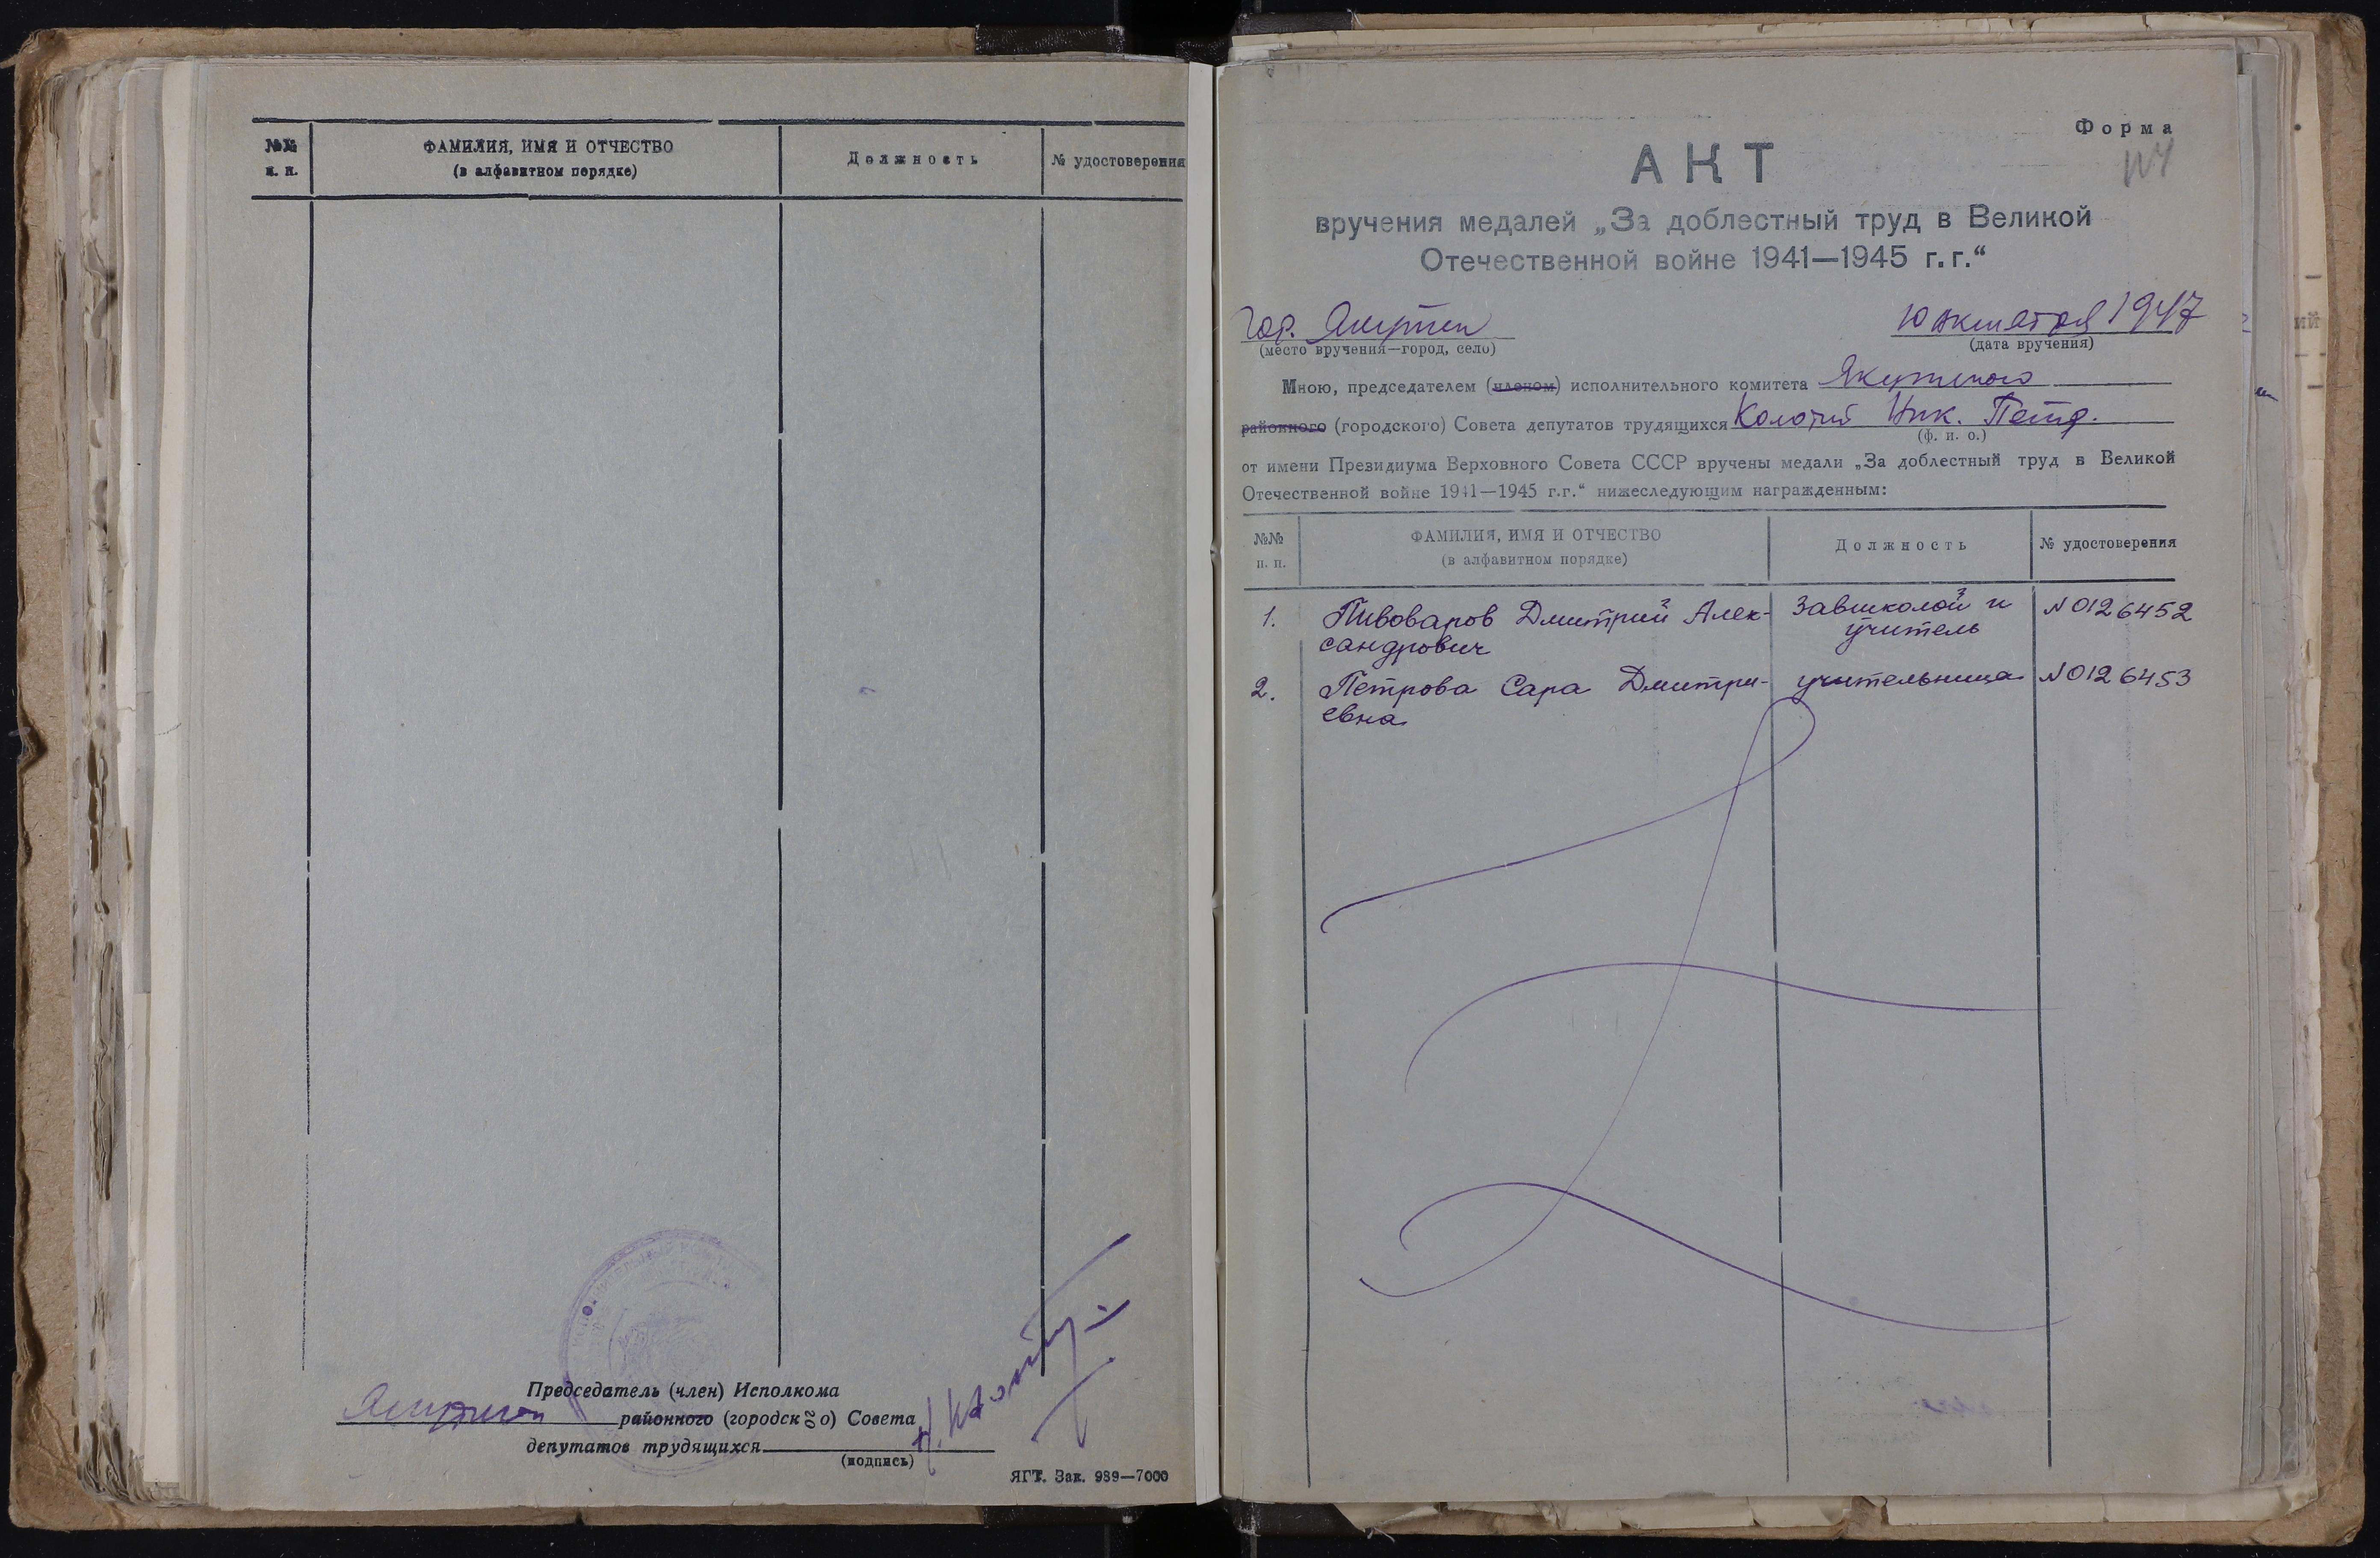 №№
п. п.
ФАМИЛИЯ, ИМЯ И ОТЧЕСТВО
(в алфавитном порядке)
Должность
№ удостоверения
Председатель (член) Исполкома
районного (городского) Совета
депутатов трудящихся
(подпись)
ЯГТ. Зак. 989—7000
Форма
АКТ
вручения медалей „За доблестный труд в Великой
Отечественной войне 1941—1945 г.г.“
гор. Якутск
10 октября 1947
(место вручения—город, село)
(дата вручения)
Мною, председателем (членом) исполнительного комитета Якутского
районного (городского) Совета депутатов трудящихся Колотий Ник. Петр.
(ф. и. о.)
от имени Президиума Верховного Совета СССР вручены медали „За доблестный труд в Великой
Отечественной войне 1941—1945 г.г.“ нижеследующим награжденным:
№№
п. п.
ФАМИЛИЯ, ИМЯ И ОТЧЕСТВО
(в алфавитном порядке)
Должность
№ удостоверения
1. Пивоваров Дмитрий Алек- Завшколой и N 0126452
сандрович учитель
2. Петрова Сара Дмитри- учительница N 0126453
евна